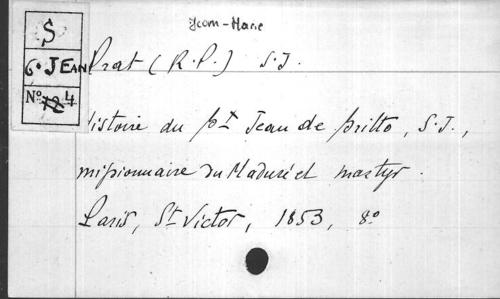 Jean-Marie
S
6° JEAN
N° 724
Prat (R.P.) S.J.
Histoire du Bt Jean de Britto, S.J.,
missionnaire du Maduré et martyr.
Paris, St Victor, 1853, 8°